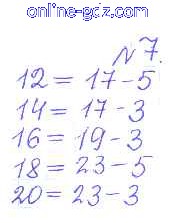 online-gdz.com
N 7.
12 = 17 - 5
14 = 17 - 3
16 = 19 - 3
18 = 23 - 5
20 = 23 - 3